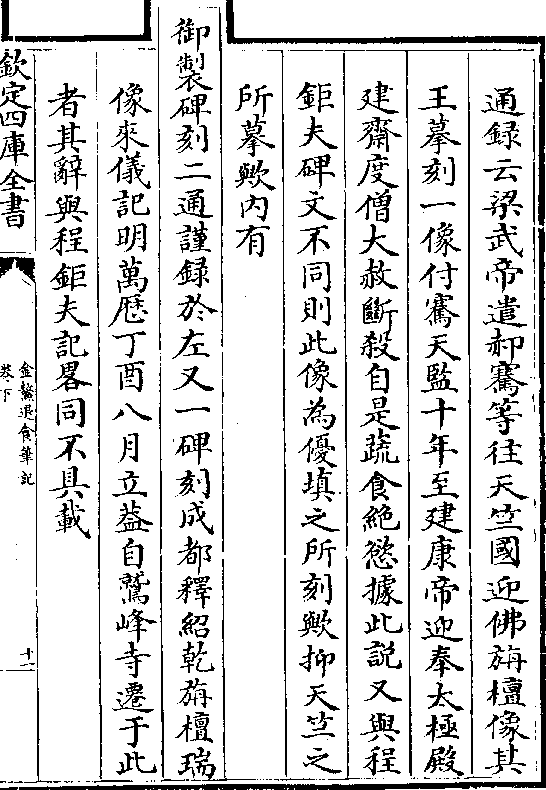 通録云梁武帝遣郝騫等往天竺國迎佛旃檀像其
王摹刻一像付騫天監十年至建康帝迎奉太極殿
建齋度僧大赦斷殺自是蔬食絶慾據此說又與程
鉅夫碑文不同則此像為優填之所刻歟抑天竺之
所摹歟内有
御製碑刻二通謹録於左又一碑刻成都釋紹乾旃檀瑞
像來儀記明萬厯丁酉八月立葢自鷲峰寺遷于此
者其辭與程鉅夫記畧同不具載
欽定四庫全書
金鰲退食筆記
卷下
十一